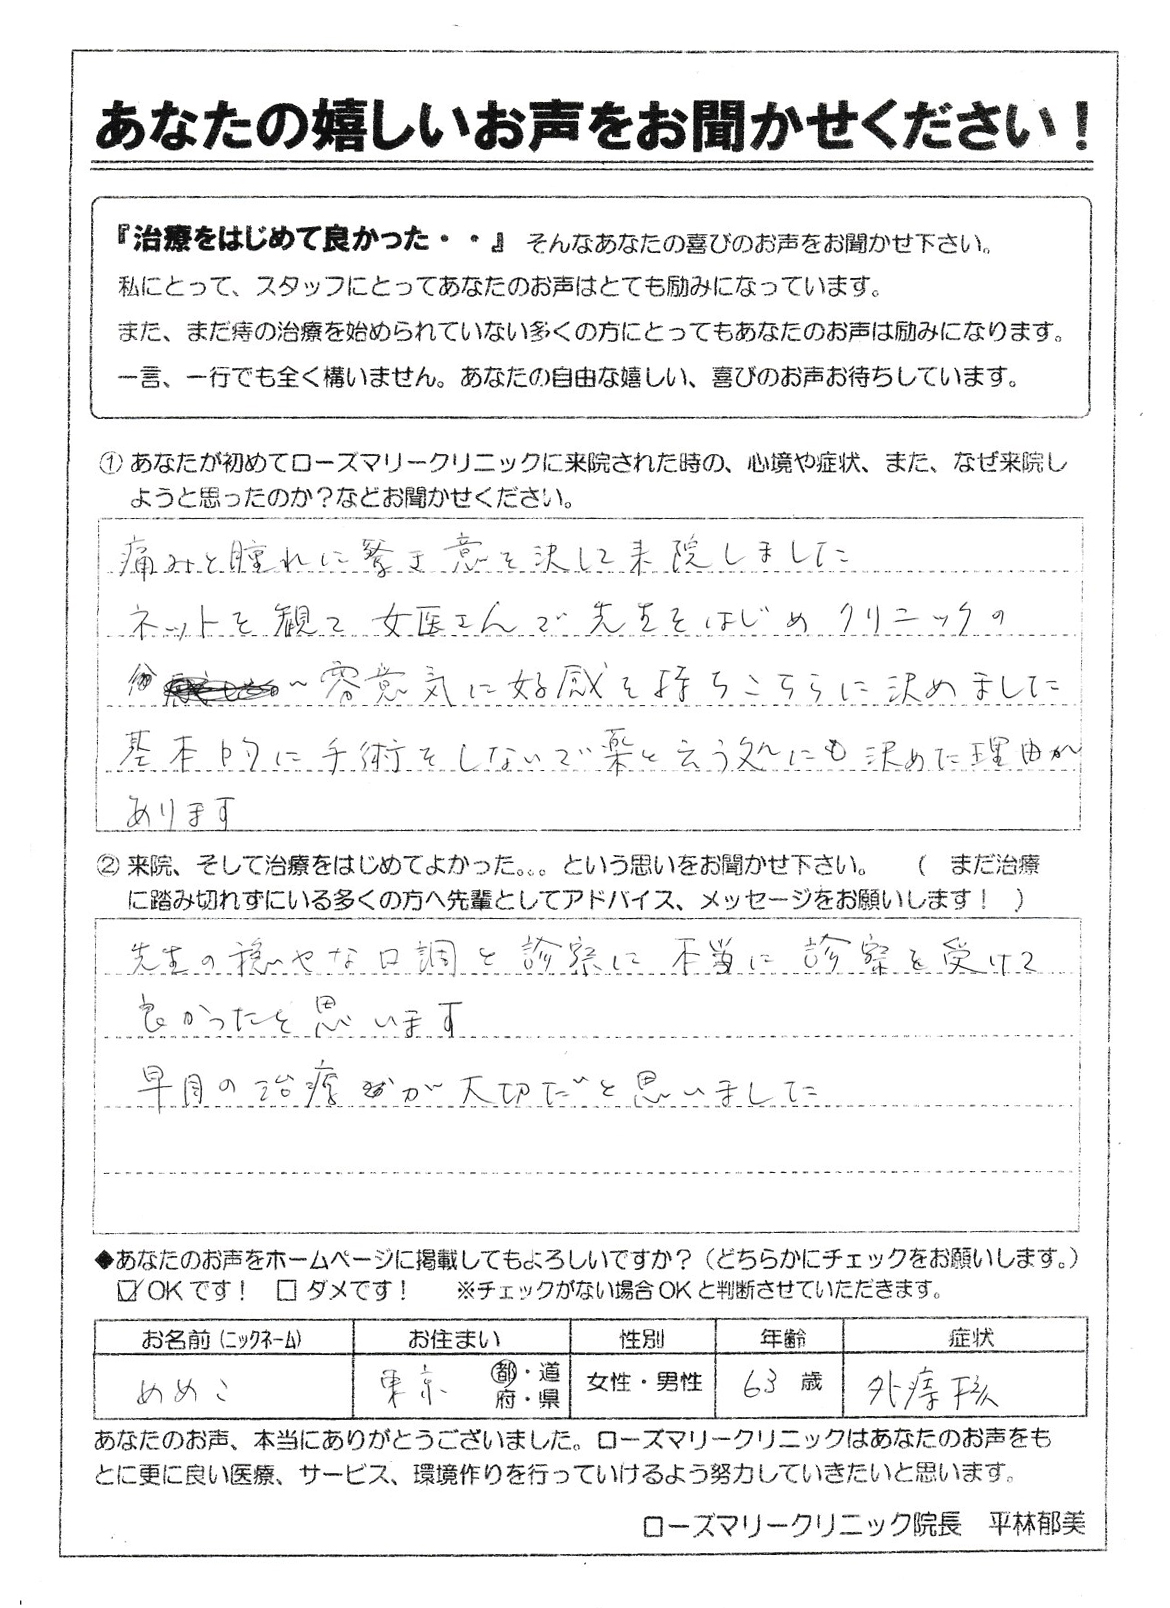 あなたの嬉しいお声をお聞かせください！
『治療をはじめて良かった・・』 そんなあなたの喜びのお声をお聞かせ下さい。
私にとって、スタッフにとってあなたのお声はとても励みになっています。
また、まだ痔の治療を始められていない多くの方にとってもあなたのお声は励みになります。
一言、一行でも全く構いません。あなたの自由な嬉しい、喜びのお声お待ちしています。
① あなたが初めてローズマリークリニックに来院された時の、心境や症状、また、なぜ来院し
ようと思ったのか？などお聞かせください。
痛みと腫れに驚き意を決して来院しました
ネットを観て女医さんで先生をはじめクリニックの
雰意気に好感を持ちこちらに決めました
基本的に手術をしないで薬と云う処にも決めた理由が
あります
② 来院、そして治療をはじめてよかった。。。という思いをお聞かせ下さい。 （ まだ治療
に踏み切れずにいる多くの方へ先輩としてアドバイス、メッセージをお願いします！ ）
先生の穏やな口調と診察に本当に診察を受けて
良かったと思います
早目の治療が大切だと思いました
◆あなたのお声をホームページに掲載してもよろしいですか？（どちらかにチェックをお願いします。）
☑ OK です！ □ ダメです！ ※チェックがない場合 OK と判断させていただきます。
お名前（ニックネーム） お住まい 性別 年齢 症状
めめこ 東京 都・道 府・県 女性・男性 63 歳 外痔核
あなたのお声、本当にありがとうございました。ローズマリークリニックはあなたのお声をも
とに更に良い医療、サービス、環境作りを行っていけるよう努力していきたいと思います。
ローズマリークリニック院長 平林郁美